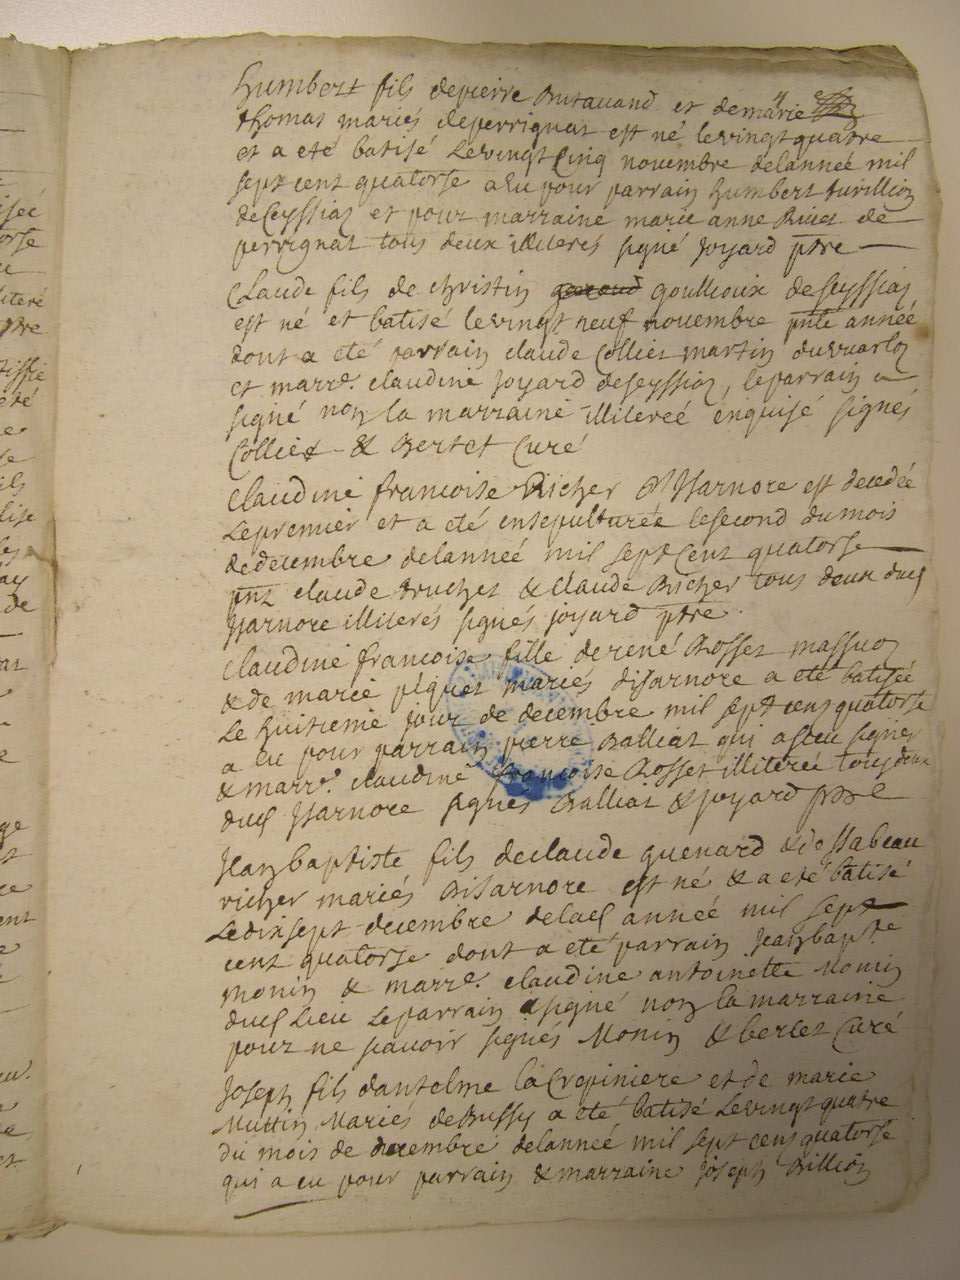 humbert fils de pierre Butavand et de marie
thomas mariés de perrignat est né le vingt quatre
et a eté batisé Le vingt Cinq novembre de lanneé mil
sept cent quatorse a Eu pour parrain humbert
de seyssiat et pour marraine marie anne de
perrignat tous deux illiteres signé Joyard ptre
Claude fils de christin goullioux de seyssiat
est né et batisé le vingt neuf novembre pnte année
dont a eté parrain claude Colliet martin
et marre. claudine Joyard de seyssiat, le parrain a
signé non la marraine illitereé enquisé signés
Colliet & Bertet Curé
Claudine francoise Richer D'Isarnore est decedée
Le premier et a eté ensepulturée le second du mois
de decembre de lanneé mil sept Cent quatorse
pnt claude bruchet & Claude Richer tous deux dud
Isarnore illiterés signés joyard ptre.
Claudine francoise fille de rené Rosset
& de marie piquet mariés disarnore a eté batisée
Le huitieme jour de decembre mil sept cent quatorse
a eu pour parrain pierre Balliat qui a sceu signer
& marre. claudine francoise Rosset illitereé tous deux
dud Isarnore signés Balliat & Joyard ptre
Jean baptiste fils de claude guenard & d'Isabeau
richer mariés Disarnore est né & a eté batisé
Le dix sept decembre de lad année mil sept
cent quatorse dont a eté parrain Jean bapte
monin & marre. claudine antoinette Monin
dud Lieu Le parrain a signé non la marraine
pour ne savoir signés Monin & bertet Curé
Joseph fils dantelme la Crepiniere et de marie
Muttin Mariés de Bussy a eté batisé Le vingt quatre
du mois de decembre de lanneé mil sept cent quatorse
qui a eu pour parrain & marraine Joseph Billion